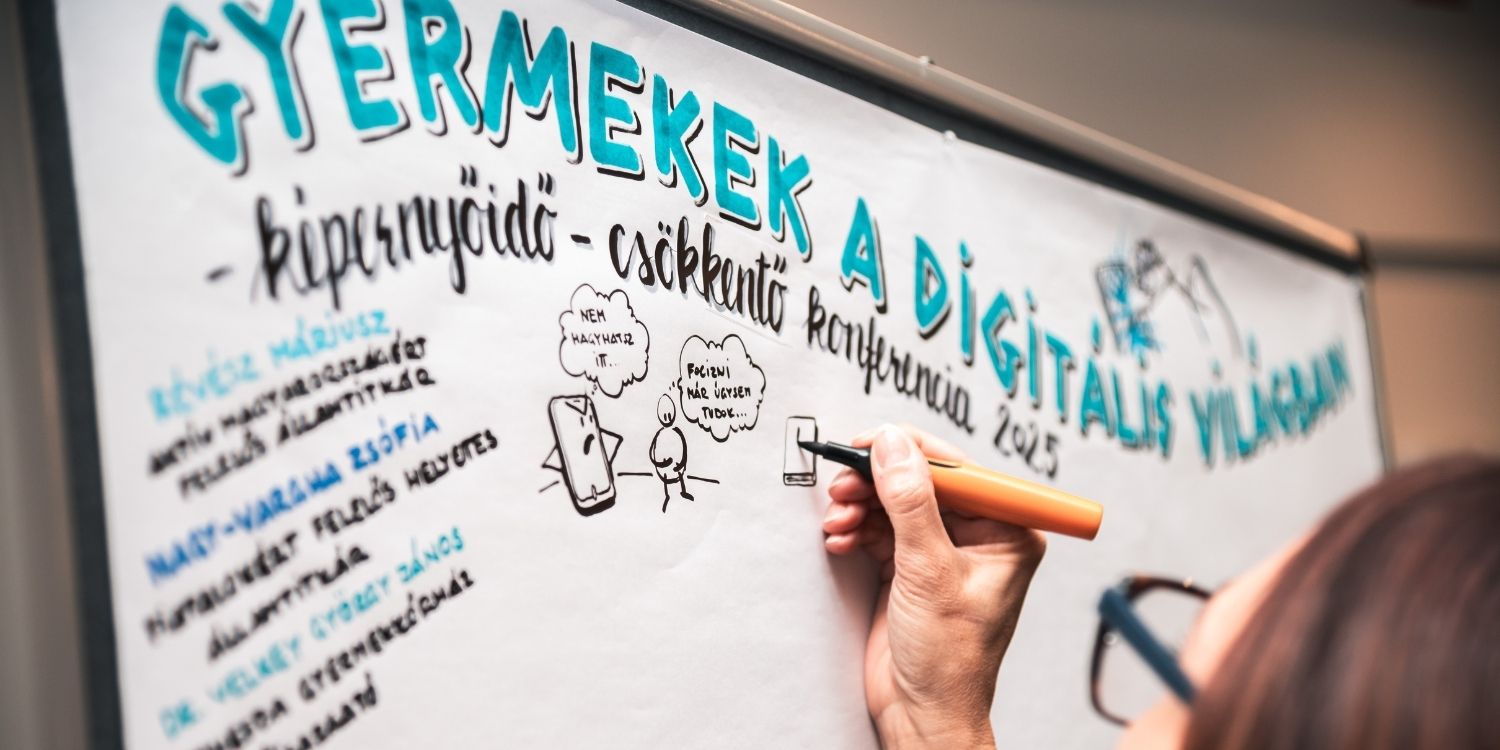 GYERMEKEK A DIGITÁLIS VILÁGBAN
- képernyőidő - csökkentő konferencia 2025
RÉVÉSZ MÁRIUSZ
AKTÍV MAGYARORSZÁGÉRT
FELELŐS ÁLLAMTITKÁR
NAGY-VARGHA ZSÓFIA
FIATALOKÉRT FELELŐS HELYETTES
ÁLLAMTITKÁR
DR. VELKEY GYÖRGY JÁNOS
BETHESDA GYERMEKKÓRHÁZ
NEM
HAGYHATSZ
ITT...
FOCIZNI
MÁR ÚGYSEM
TUDOK...